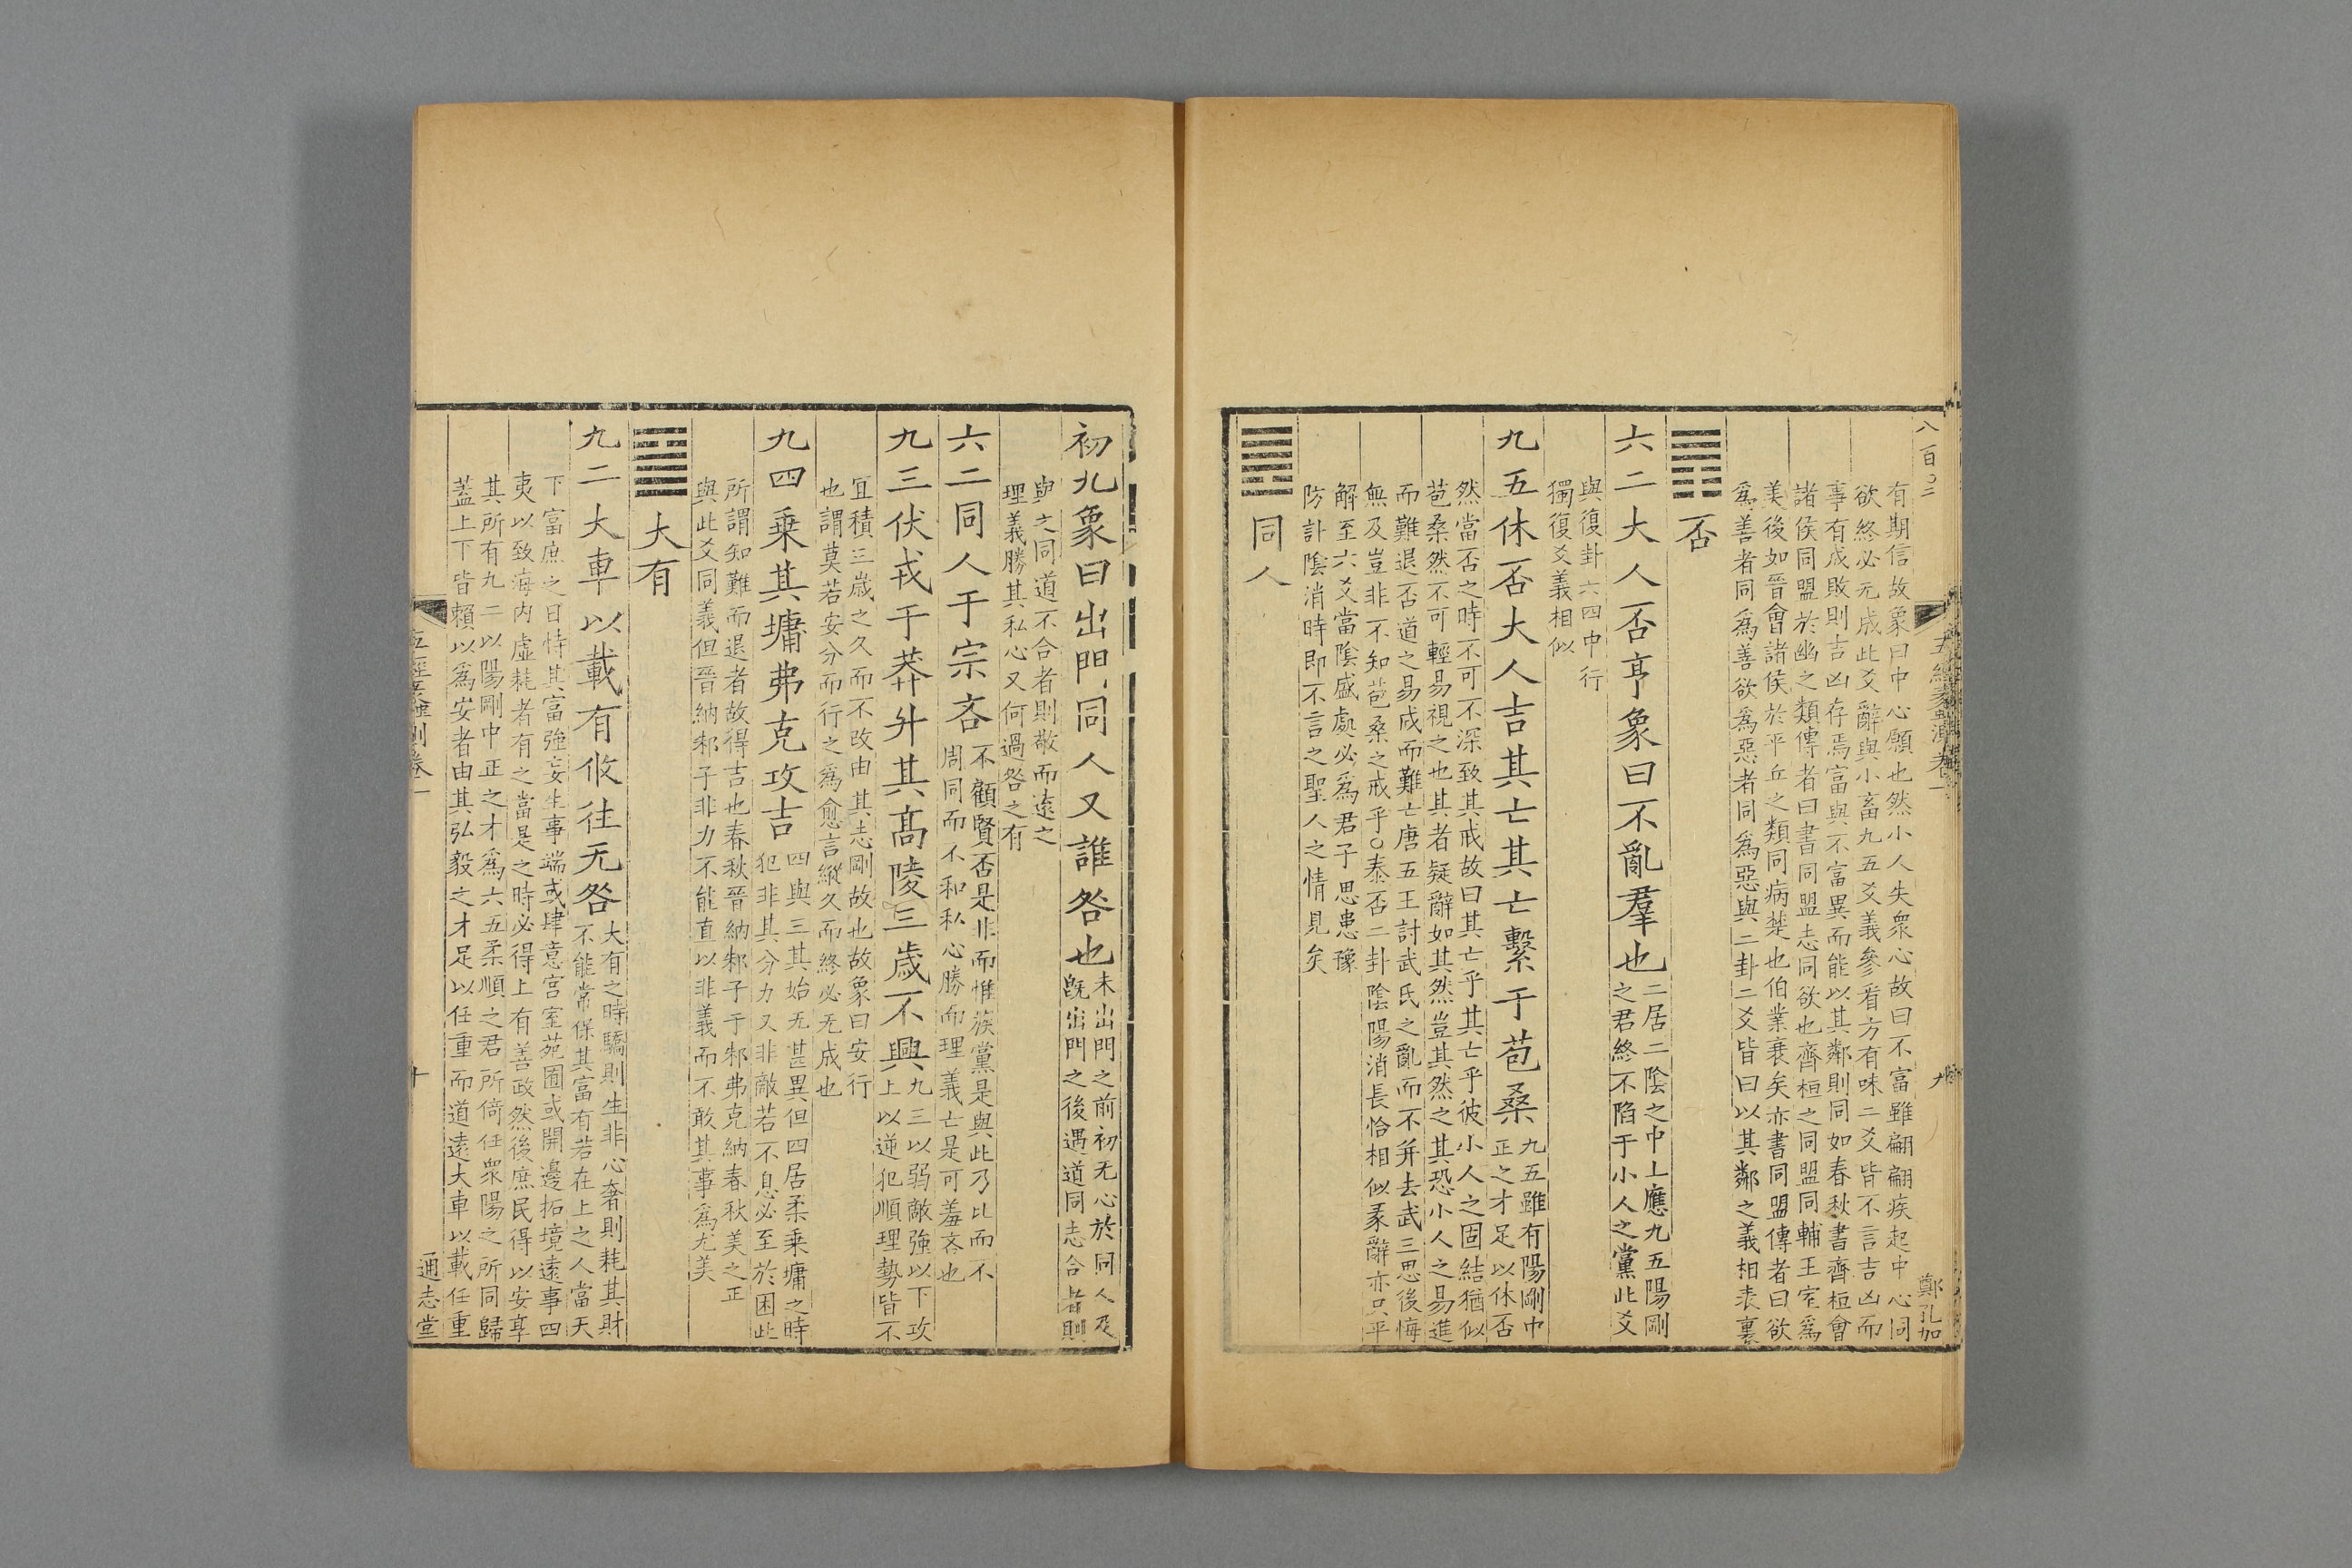 八百○二
有期信故象曰中心願也然小人失衆心故曰不富雖翩翩疾起中心同
欲終必无成此爻辭與小畜九五爻義參看方有味二爻皆不言吉凶而
事有成敗則吉凶存焉富與不富異而能以其鄰則同如春秋書齊桓會
諸侯同盟於幽之類傳者曰書同盟志同欲也齊桓之同盟同輔王室爲
美後如晉會諸侯於平丘之類同病楚也伯業衰矣亦書同盟傳者曰欲
爲善者同爲善欲爲惡者同爲惡與二卦二爻皆曰以其鄰之義相表裏
䷋否
六二大人否亨象曰不亂羣也
二居二陰之中上應九五陽剛
之君終不陷于小人之黨此爻
與復卦六四中行
獨復爻義相似
九五休否大人吉其亡其亡繫于苞桑
九五雖有陽剛中
正之才足以休否
然當否之時不可不深致其戒故曰其亡乎其亡乎彼小人之固結猶似
苞桑然不可輕易視之也其者疑辭如其然豈其然之其恐小人之易進
而難退否道之易成而難亡唐五王討武氏之亂而不并去武三思後悔
無及豈非不知苞桑之戒乎○泰否二卦陰陽消長恰相似彖辭亦只平
解至六爻當陰盛處必爲君子思患豫
防訃陰消時即不言之聖人之情見矣
䷌同人
五經蠡測卷一
九
鄭孔加
初九象曰出門同人又誰咎也
未出門之前初无心於同人及
旣出門之後遇道同志合者則
與之同道不合者則敬而遠之
理義勝其私心又何過咎之有
六二同人于宗吝
不顧賢否是非而惟蔟黨是與此乃比而不
周同而不和私心勝而理義亡是可羞吝也
九三伏戎于莽升其高陵三歲不興
九三以弱敵強以下攻
上以逆犯順理勢皆不
宜積三歲之久而不改由其志剛故也故象曰安行
也謂莫若安分而行之爲愈言縱久而終必无成也
九四乗其墉弗克攻吉
四與三其始无甚異但四居柔乗墉之時
犯非其分力又非敵若不息必至於困此
所謂知難而退者故得吉也春秋晉納邾子于邾弗克納春秋美之正
與此爻同義但晉納邾子非力不能直以非義而不敢其事爲尤美
䷍大有
九二大車以載有攸往无咎
大有之時驕則生非心奢則耗其財
不能常保其富有若在上之人當天
下富庶之日恃其富強妄生事端或肆意宮室苑囿或開邊拓境遠事四
夷以致海内虛耗者有之當是之時必得上有善政然後庶民得以安享
其所有九二以陽剛中正之才爲六五柔順之君所倚任衆陽之所同歸
蓋上下皆賴以爲安者由其弘毅之才足以任重而道遠大車以載任重
五經蠡測卷一
十
通志堂